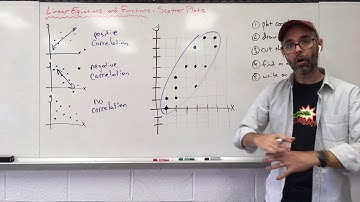 Linear Equations and Functions - Scatter Plots
positive
correlation
negative
correlation
no
correlation
x
y
① plot
② draw
③ cut th
④ find
⑤ write